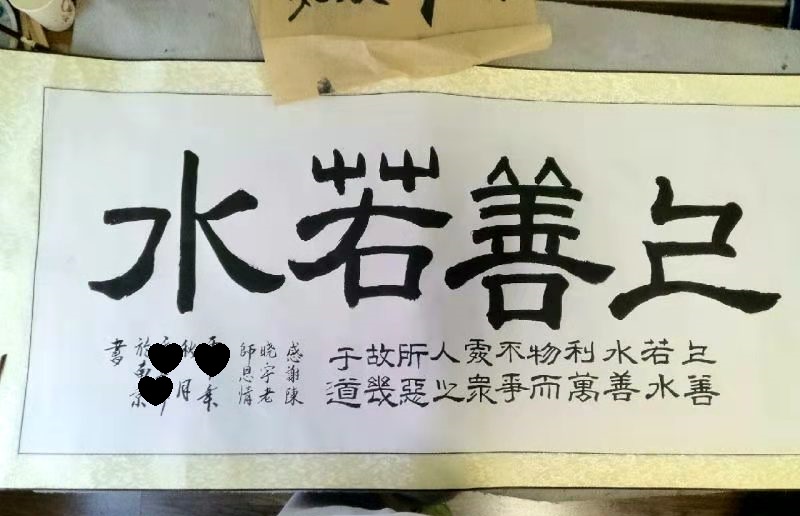 上善若水
上善
若水
水善
利萬
物而
不爭
處衆
人之
所惡
故幾
于道
感謝陳
晓宇老
師恩情
年
秋月
於
書